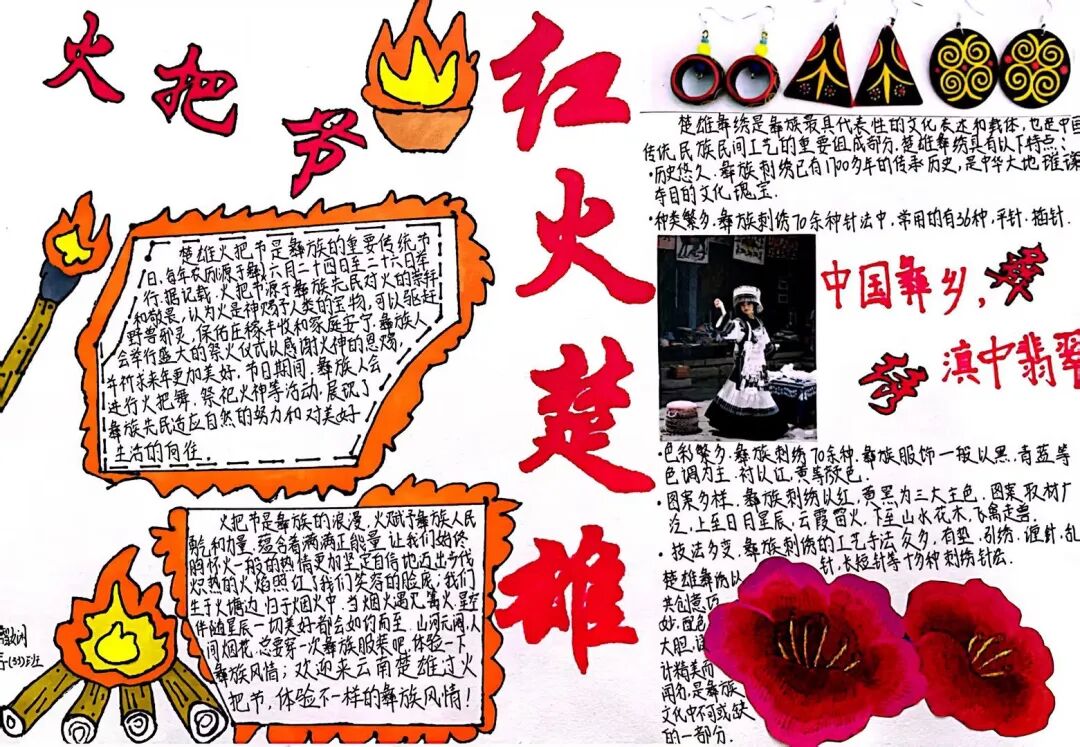 火把节
楚雄火把节是彝族的重要传统节
日,每年农历
六月二十四日至二十六日举
行.据记载,火把节源于彝族先民对火的崇拜
和敬畏,认为火是神赐予人类的宝物,可以驱赶
野兽邪灵,保佑庄稼丰收和家庭安宁.彝族人
会举行盛大的祭火仪式以感谢火神的恩赐,
并祈求来年更加美好.节日期间,彝族人会
进行火把舞.祭祀火神等活动,展现了
彝族先民适应自然的努力和对美好
生活的向往.
火把节是彝族的浪漫,火赋予彝族人民
勇气和力量,蕴含着满满正能量,让我们始终
胸怀火一般的热情更加坚定自信地迈出步伐
炽热的火焰照红了我们笑容的脸庞;我们
生于火塘边,归于烟火中,当烟火遇见篝火星空
伴随星辰一切美好都会如约而至.山河元阔,人
间烟花,总要穿一次彝族服装吧,体验一下
彝族风情;欢迎来云南楚雄过火
把节,体验不一样的彝族风情!
(33)班
红火楚雄
楚雄彝绣是彝族最具代表性的文化表达和载体,也是中国
传统民族民间工艺的重要组成部分.楚雄彝绣具有以下特点:
·历史悠久.彝族刺绣已有1700多年的传承历史,是中华大地璀璨
夺目的文化瑰宝.
·种类繁多.彝族刺绣70余种针法中,常用的有36种,平针.插针.
中国彝乡,
滇中翡翠
彝
绣
·色彩繁多.彝族刺绣70余种.彝族服饰一般以黑.青蓝等
色调为主.衬以红,黄等颜色.
·图案多样.彝族刺绣以红,黄黑为三大主色.图案取材广
泛,上至日月星辰.云霞雷火,下至山水花木.飞禽走兽.
·技法多变.彝族刺绣的工艺手法众多,有垫.
针.长短针等十多种刺绣针法.
楚雄彝绣以
共创意巧
妙.配色
大胆.设
计精美而
闻名,是彝族
文化中不可或缺
的一部分.